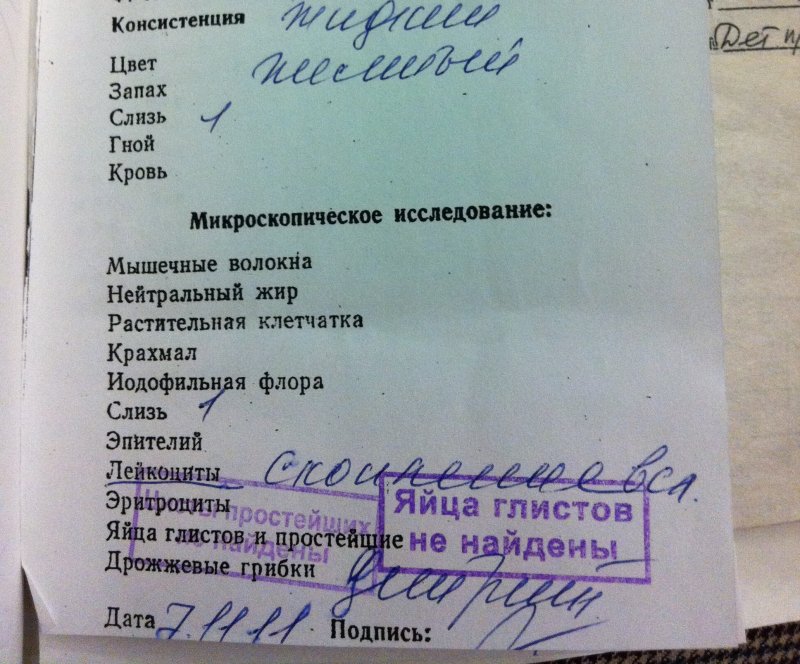 Консистенция жидкий
Цвет желтый
Запах
Слизь 1
Гной
Кровь
Микроскопическое исследование:
Мышечные волокна
Нейтральный жир
Растительная клетчатка
Крахмал
Иодофильная флора
Слизь 1
Эпителий
Лейкоциты скопление всл.
Эритроциты
простейших
не найдены
Яйца глистов
не найдены
Яйца глистов и простейшие
Дрожжевые грибки
Дата 7.11.11 Подпись:
Дет